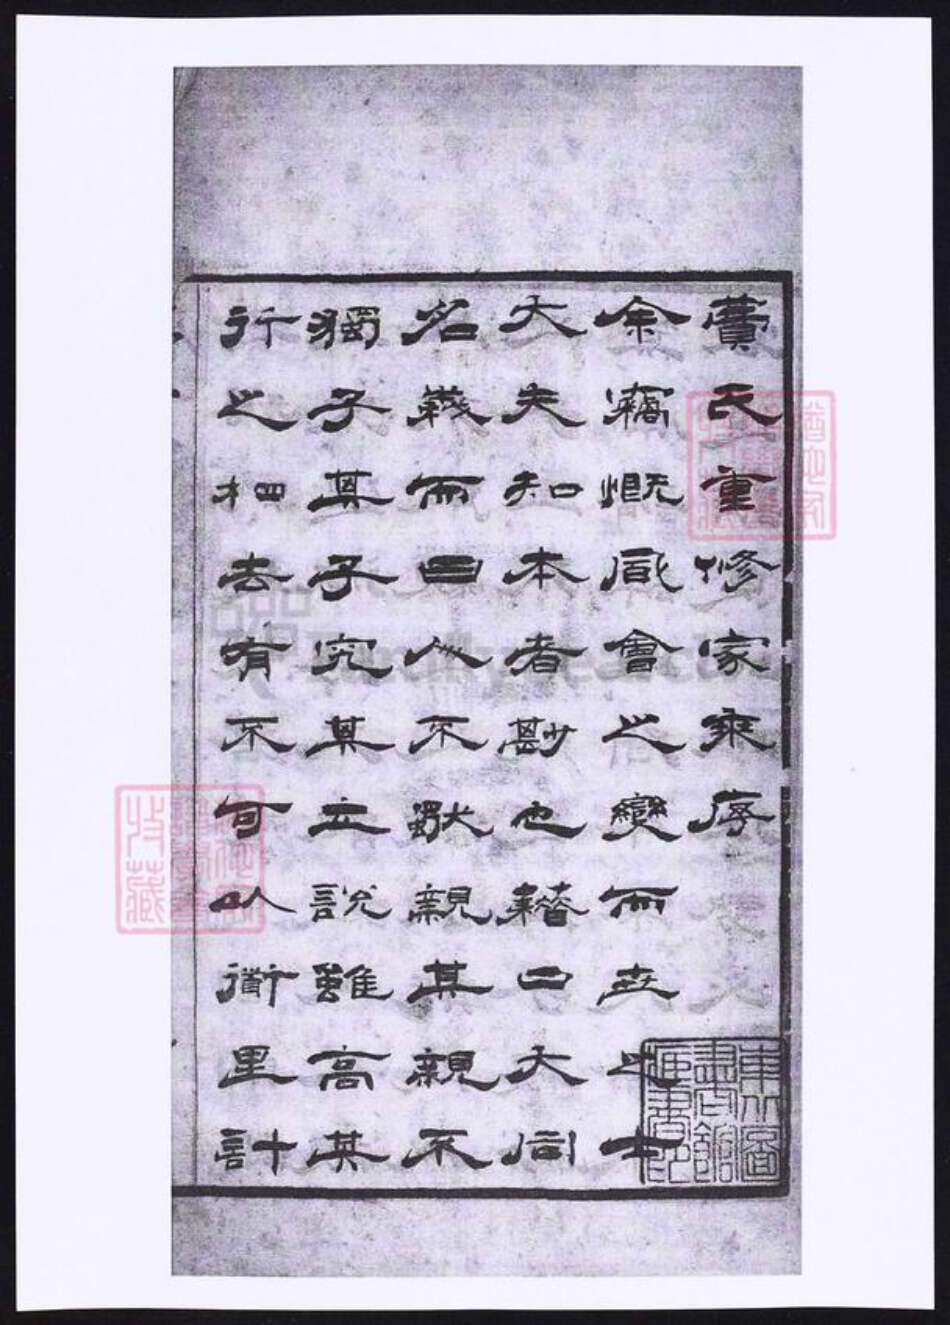 氏重修家乘序
余竊慨風會之變而世之士
大夫知本者尠也藉口大同
名義而曰人不獨親其親不
獨子其子究其立說雖高其
行之相去有不可以衜里計